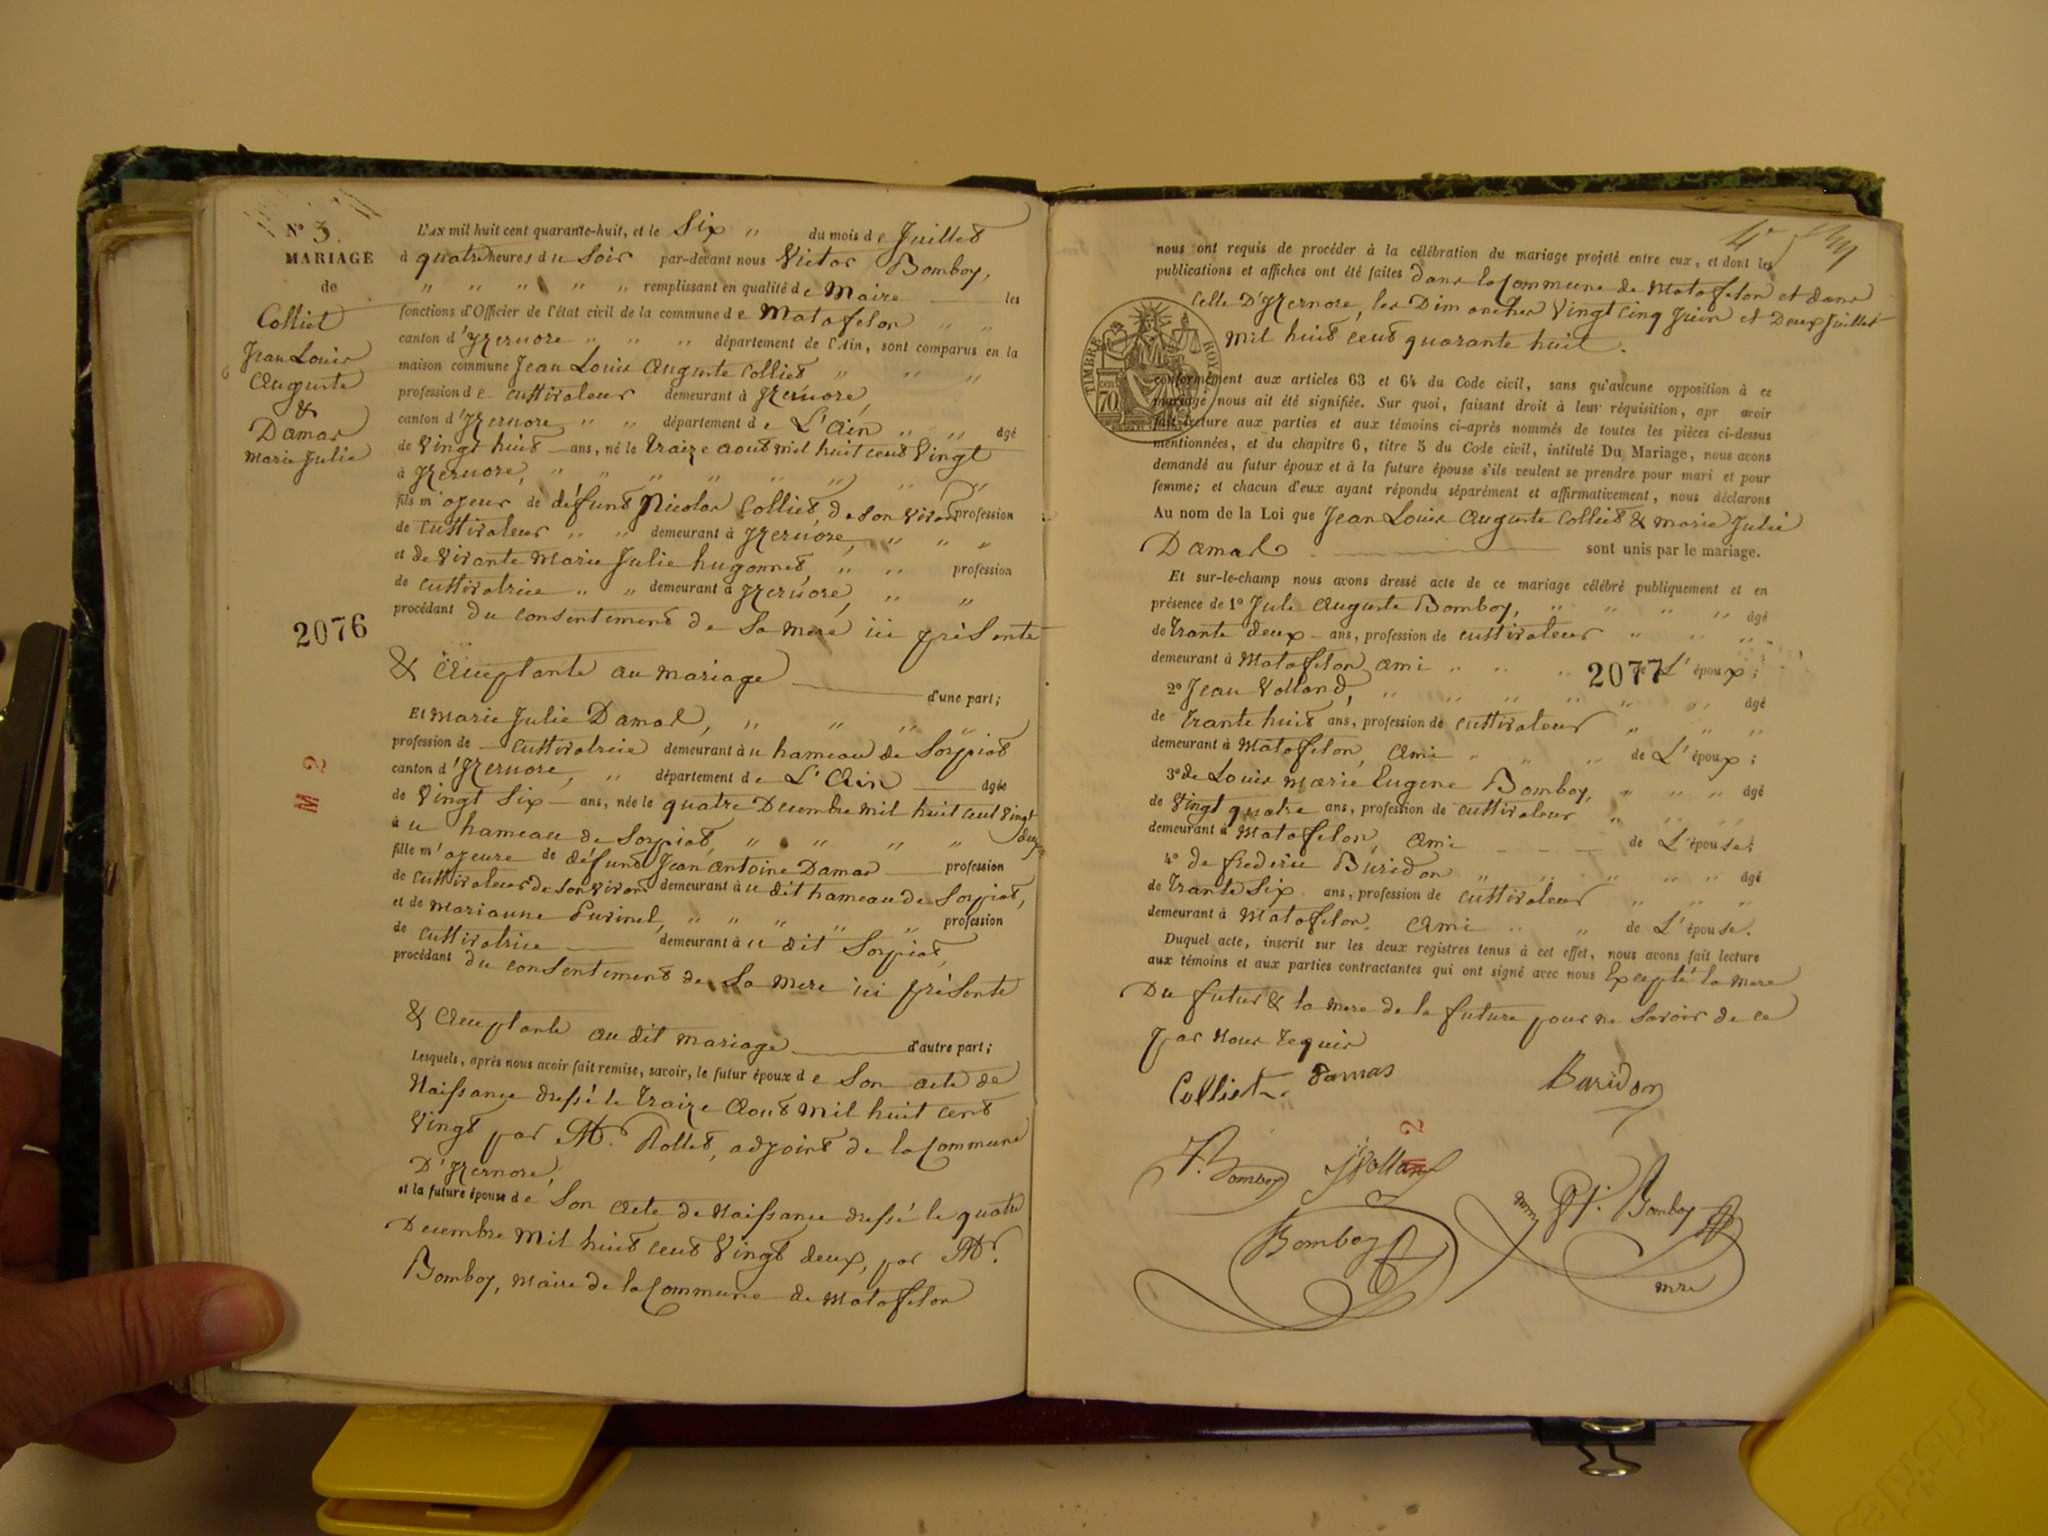 N° 3.
MARIAGE
de
Colliet
Jean Louis
Auguste
&
Damas
Marie Julie
2076
M 2
L'AN mil huit cent quarante-huit, et le Six " du mois de Juillet
à quatre heures du Soir par-devant nous Victor Bomboy,
" " " " " " remplissant en qualité de Maire les
fonctions d'Officier de l'état civil de la commune de Matafelon " "
canton d'Izernore " " " département de l'Ain, sont comparus en la
maison commune Jean Louis Auguste Colliet " " "
profession de cultivateur demeurant à Izernore,
canton d'Izernore " " département de L'Ain " " âgé
de Vingt huit ans, né le traize aout mil huit cent Vingt
à Izernore, " " " " " " "
fils m'ajeur de défunt Nicolas Colliet, de son vivant profession
de cultivateur " " demeurant à Izernore, " " "
et de vivante Marie Julie hugonnet, " " profession
de cultivatrice " " demeurant à Izernore, " "
procédant du consentement de Sa mere ici préSente
& acceptante au mariage d'une part;
Et Marie Julie Damas, " " " "
profession de cultivatrice demeurant au hameau de Sorpiat
canton d'Izernore, " département de L'Ain âgée
de Vingt Six ans, née le quatre Decembre mil huit cent Vingt
deux
au hameau de Sorpiat, " " " " "
fille m'ajeure de défunt Jean Antoine Damas profession
de cultivateur de son vivant demeurant au dit hameau de Sorpiat,
et de Marianne Euvinel, " " " " " profession
de cultivatrice demeurant au dit Sorpiat,
procédant du consentement de Sa mere ici préSente
& acceptante au dit mariage d'autre part;
Lesquels, après nous avoir fait remise, savoir, le futur époux de Son acte de
Naissance dressé le traize Aout mil huit cent
Vingt par Mr. Rollet, adjoint de la Commune
D'Izernore,
et la future épouse de Son acte de Naissance dressé le quatre
Decembre mil huit cent Vingt deux, par Mr.
Bomboy, maire de la Commune de Matafelon
nous ont requis de procéder à la célébration du mariage projeté entre eux, et dont les
publications et affiches ont été faites dans la Commune de Matafelon et dans
Celle D'Izernore, les Dimanches Vingt Cinq Juin et Deux Juillet
Mil huit cent quarante huit.
TIMBRE ROYAL
70 cent
conformément aux articles 63 et 64 du Code civil, sans qu'aucune opposition à ce
mariage nous ait été signifiée. Sur quoi, faisant droit à leur réquisition, apr avoir
fait lecture aux parties et aux témoins ci-après nommés de toutes les pièces ci-dessus
mentionnées, et du chapitre 6, titre 5 du Code civil, intitulé Du Mariage, nous avons
demandé au futur époux et à la future épouse s'ils veulent se prendre pour mari et pour
femme; et chacun d'eux ayant répondu séparément et affirmativement, nous déclarons
Au nom de la Loi que Jean Louis Auguste Colliet & Marie Julie
Damas sont unis par le mariage.
Et sur-le-champ nous avons dressé acte de ce mariage célébré publiquement et en
présence de 1° Jule Auguste Bomboy, " " " " âgé
de trante deux ans, profession de cultivateur " " "
demeurant à Matafelon, ami " " " de L'époux;
2077
2° Jean Volland, " " " " " " " âgé
de trante huit ans, profession de cultivateur " " "
demeurant à Matafelon, Ami " " " de L'époux;
3° de Louis Marie Eugene Bomboy, " " " âgé
de Vingt quatre ans, profession de cultivateur " " "
demeurant à Matafelon, Ami de L'épouse;
4° de frederic Buridon " " " " " âgé
de trante Six ans, profession de cultivateur " " "
demeurant à Matafelon, Ami " " de L'épouse.
Duquel acte, inscrit sur les deux registres tenus à cet effet, nous avons fait lecture
aux témoins et aux parties contractantes qui ont signé avec nous Excepté la mere
Du futur & la mere de la future pour ne Savoir de ce
par Nous requis
Colliet. Damas Buridon
M 2
Bomboy JVolland
Bomboy
Bomboy
mre